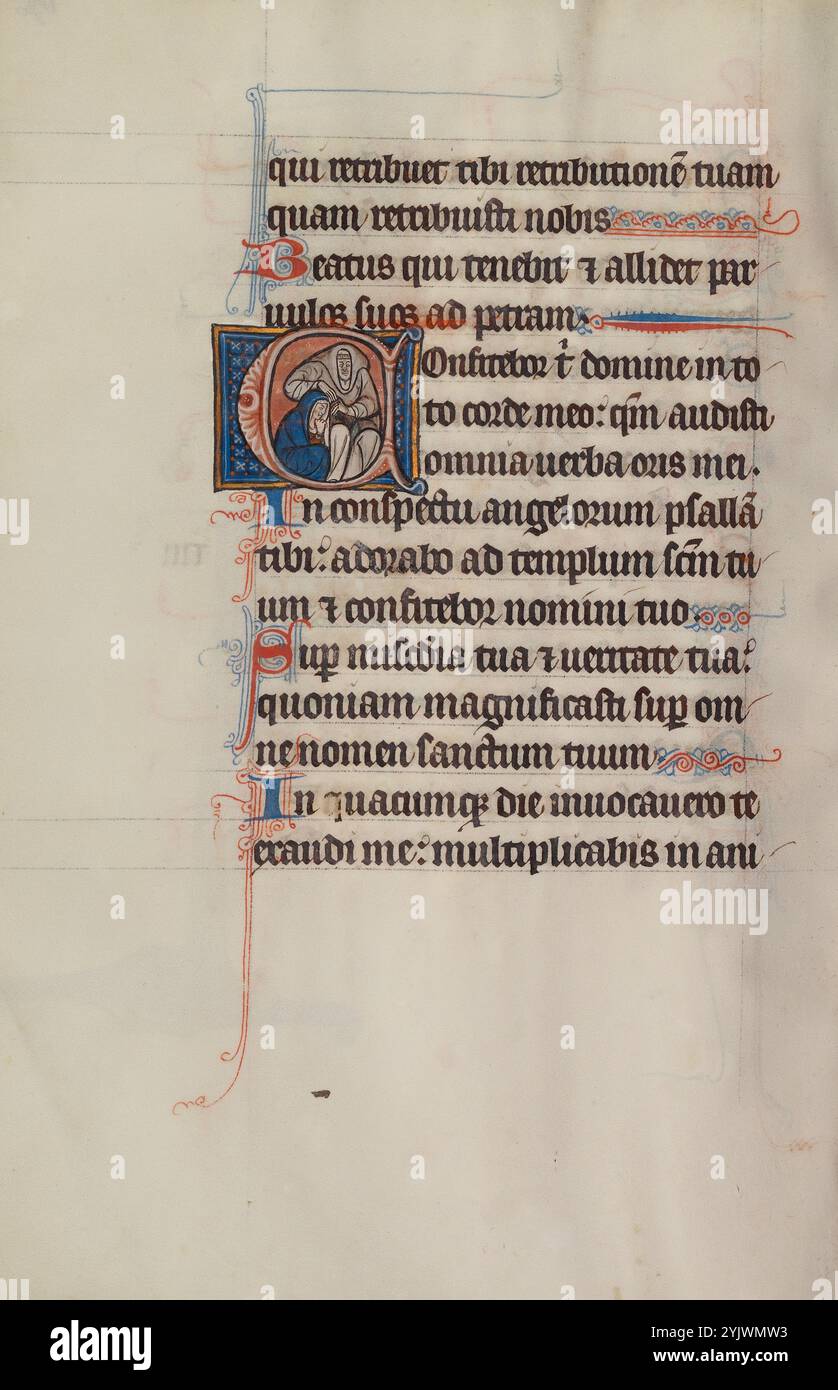 qui retribuet tibi retributionē tuam
quam retribuisti nobis
Beatus qui tenebit ⁊ allidet par
uulos suos ad petram.
Confitebor tͥ domine in to
to corde meo: qm̄ audisti
omnia uerba oris mei.
In conspectu angelorum psallā
tibi: adorabo ad templum scm̄ tu
um ⁊ confitebor nomini tuo.
Suꝑ mīscdia tua ⁊ ueritate tua:
quoniam magnificasti suꝑ om
ne nomen sanctum tuum
In quacumqꝫ die inuocauero te
exaudi me: multiplicabis in ani
alamy
Image ID: 2YJWMW3
www.alamy.com